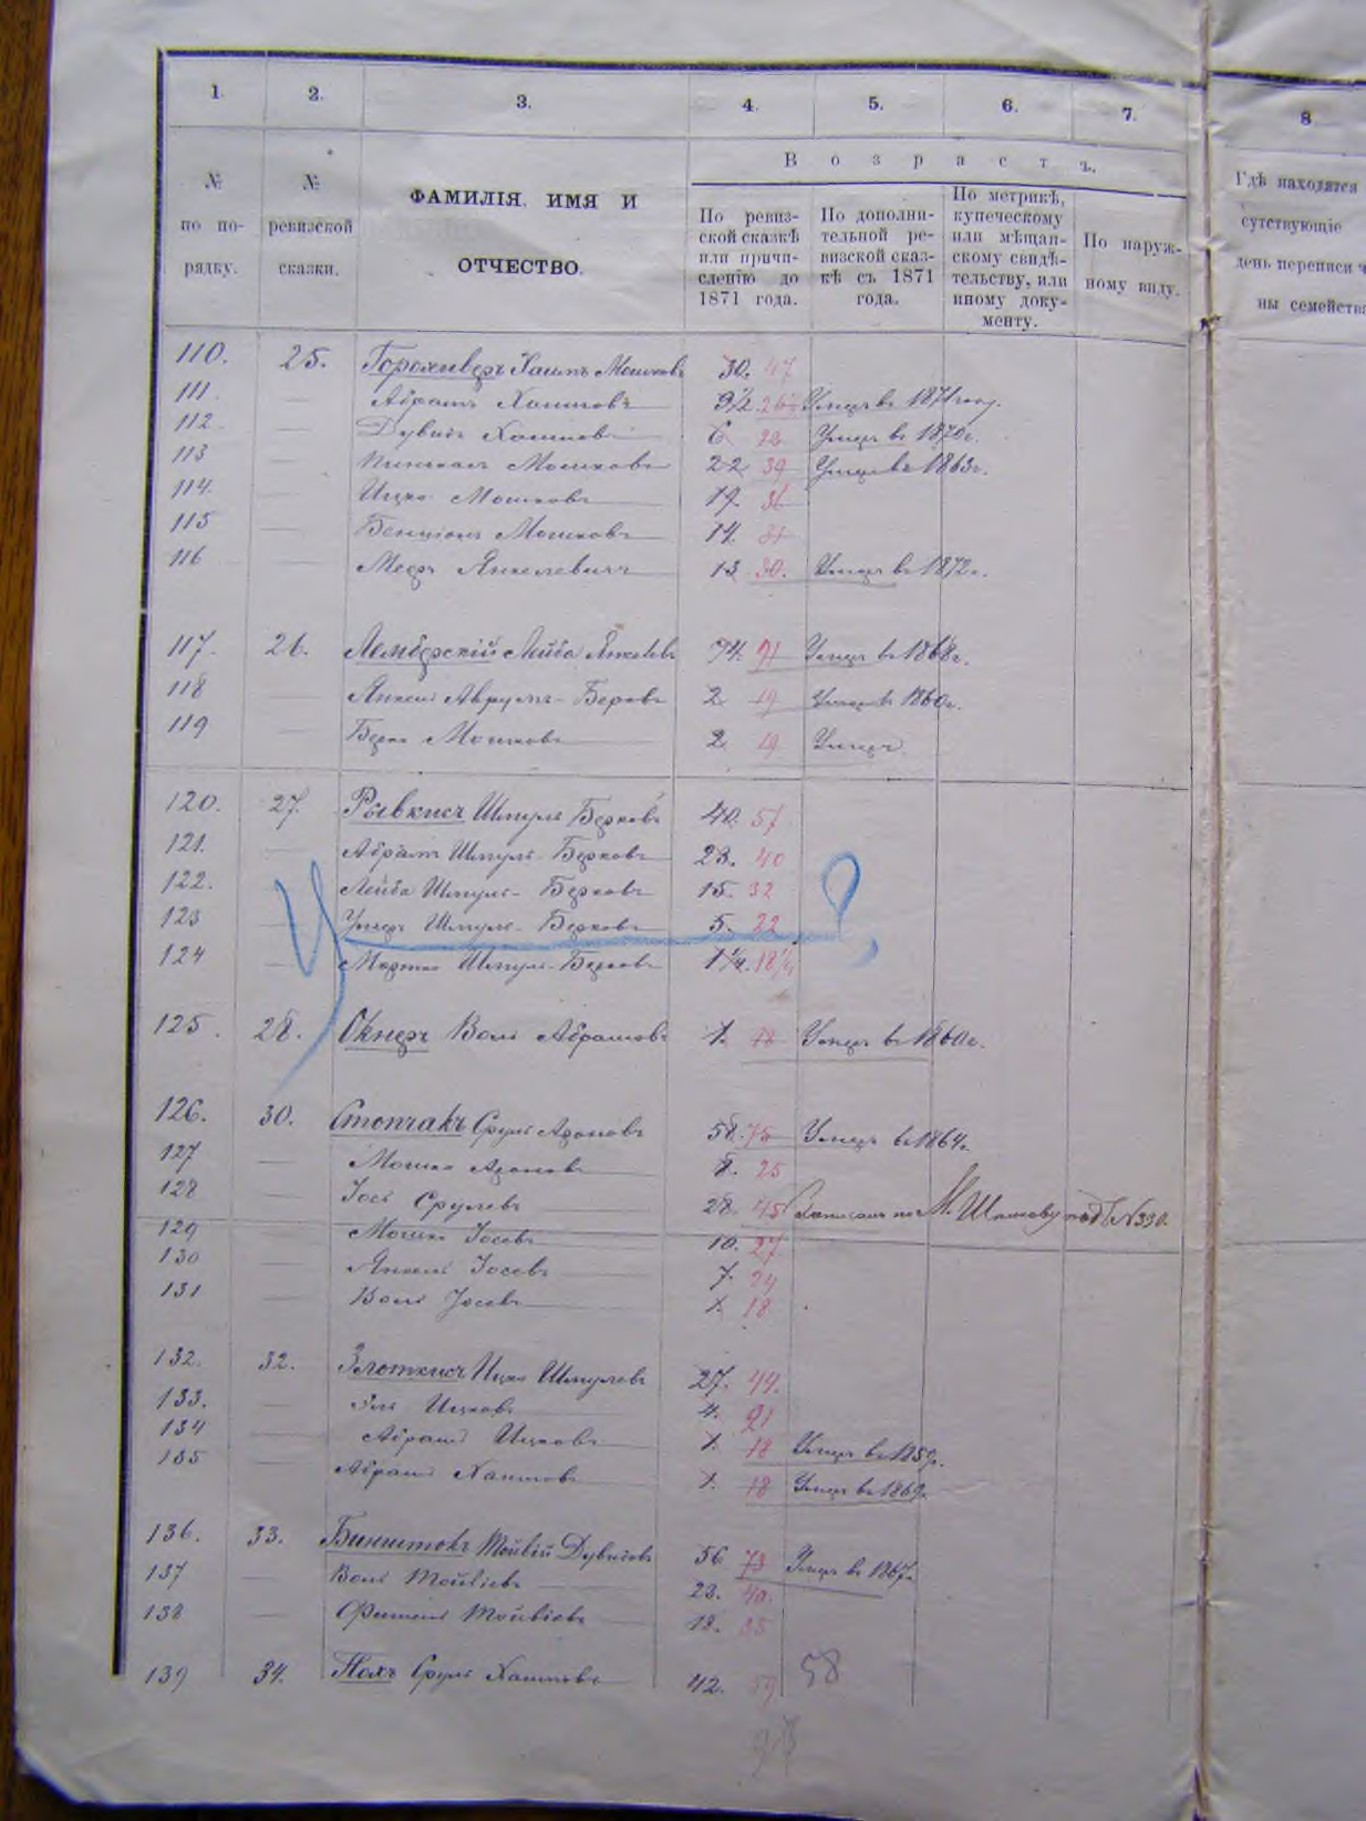 1. 2. 3. 4. 5. 6. 7. 8
Возрастъ.
№ по порядку.
№ ревизской сказки.
ФАМИЛІЯ, ИМЯ И ОТЧЕСТВО.
По ревизской сказкѣ или причисленію до 1871 года.
По дополнительной ревизской сказкѣ съ 1871 года.
По метрикѣ, купеческому или мѣщанскому свидѣтельству, или иному документу.
По наружному виду.
Гдѣ находятся
сутствующіе
день переписи ч
ны семейства
110. 25. Хаимъ Мошковъ 30. 47
111. Абрамъ Хаимовъ 9½ 26½ Умеръ въ 1871 году.
112 Дувидъ Хаимовъ 6 22 Умеръ въ 1870 г.
113 Мошковъ 22 39 Умеръ въ 1863 г.
114. Ицко Мошковъ 19. 36
115 Бенціонъ Мошковъ 14 31
116 Мееръ Янкелевичъ 13 30. Умеръ въ 1872 г.
117. 26. Лембергскій Лейба Янкелевъ 74. 91 Умеръ въ 1868 г.
118 Янкель Аврумъ-Берковъ 2 19 Умеръ въ 1860 г.
119 Берко Мошковъ 2 19 Умеръ
120. 27. Рывкисъ Шмуль Берковъ 40. 57
121. Абрамъ Шмуль-Берковъ 23. 40
122. Лейба Шмуль-Берковъ 15. 32
123 Умеръ Шмуль-Берковъ 5. 22 ?
124 Мортко Шмуль-Берковъ 1¼. 18¼
125. 28. Окнеръ Воль Абрамовъ 1. 18 Умеръ въ 1860 г.
126. 30. Стопчакъ Сруль Ароновъ 58. 75 Умеръ въ 1864 г.
127 Мошко Ароновъ 8. 25
128 Іось Срулевъ 28. 45 Записанъ по М. Шпикову под № 330.
129 Мошко Іосевъ 10. 27
130 Янкель Іосевъ 7. 24
131 Воль Іосевъ 1. 18
132. 32. Злоткисъ Ицко Шмулевъ 27. 44.
133. Эль Ицковъ 4. 21
134 Абрамъ Ицковъ 1. 18 Умеръ въ 1859 г.
135 Абрамъ Хаимовъ 1. 18 Умеръ въ 1869 г.
136. 33. Бинштокъ Мойвій Дувидовъ 56 73 Умеръ въ 1867 г.
137 Воль Мойвіевъ 23. 40.
138 Фишель Мойвіевъ 18. 35
139 34. Полъ Сруль Хаимовъ 42. 59
58